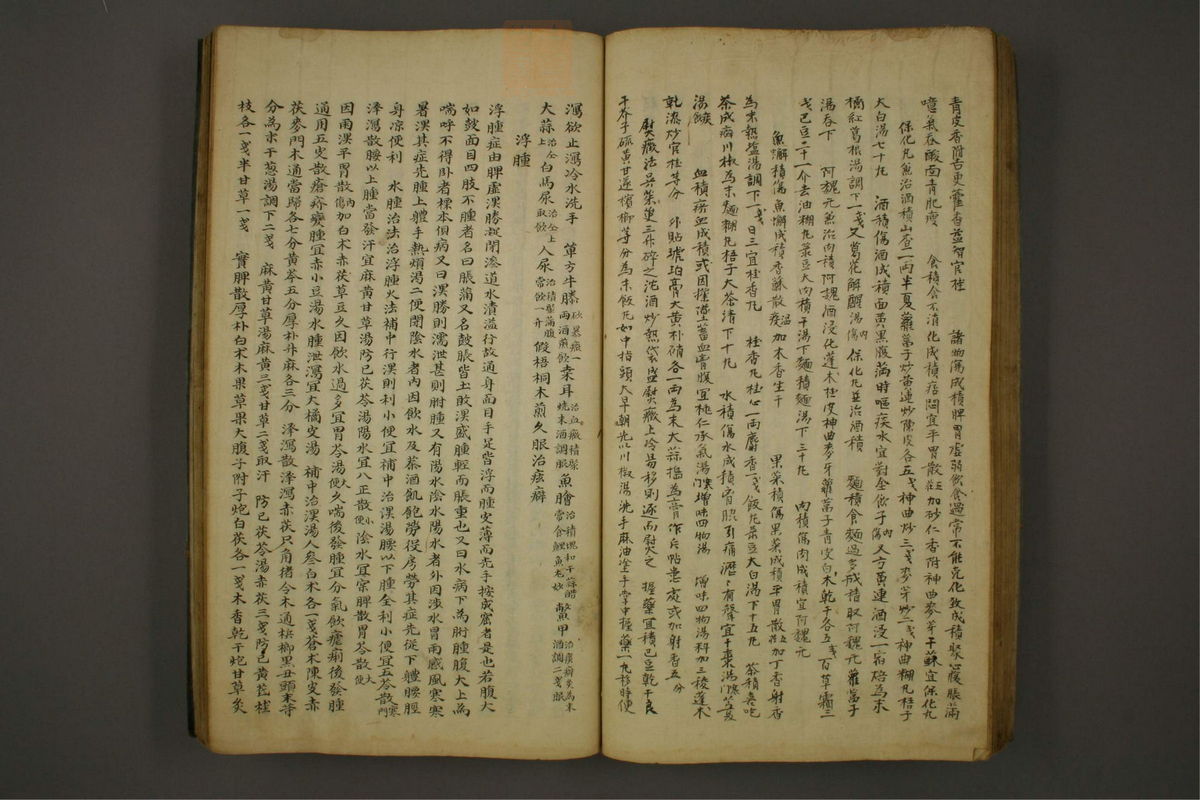 青皮香附舌更藿香益智官桂 諸物傷成積脾胃虛弱飮食過常不能克化致成積聚心腹脹滿
噫氣呑酸面靑肥瘦 食積食不消化成積痞悶宜平胃散加砂仁香附神曲麥芽干蘇宜保化丸
保化丸兼治酒積山查二兩半夏蘿葍子炒黃連炒陳皮各五戔神曲炒三戔麥芽炒二戔神曲糊丸梧子
大白湯七十丸 酒積傷酒成積面黃黑腹滿時嘔痰水宜對金飮子內又方黃連酒浸一宿焙為末
橘紅葛根湯調下一戔又葛花解酲湯內傷保化丸並治酒積 麵積食麵過多成積取阿魏元蘿葍子
湯呑下 阿魏元兼治肉積阿魏酒浸化蓬朮桂皮神曲麥牙蘿葍子青皮白朮乾干各五戔百草霜三
戔巴豆二十一介去油糊丸菉豆大肉積干湯下麵積麵湯下三十丸 肉積傷肉成積宜阿魏元
魚蠏積傷魚蠏成積香蘇散瘟疫加木香生干 果菜積傷果菜成積平胃散加丁香射香
為末熟塩湯調下一戔日三宜桂香丸 桂香丸桂心一兩麝香一戔飯丸菉豆大白湯下十五丸 茶積喜吃
茶成病川椒為末麵糊丸梧子大茶淸下十丸 水積傷水成積胷脇引痛瀝瀝有聲宜干棗湯
湯飮 血積瘀血成積或因墮蓄血胷腹宜桃仁承氣湯增味四物湯 增味四物湯料加三稜蓬朮
乾漆炒官桂等分 外貼琥珀膏大黃朴硝各一兩為末大蒜搗為膏作片帖患處或加射香五分
熨癥法吳茱萸三升碎之沈酒炒熟帒盛熨癥上冷易移則逐而熨之 握藥宜積巴豆乾干良
干芥子硫黃甘遂檳榔等分為末飯丸如中指頭大早朝先以川椒湯洗手麻油塗手掌中握藥一丸移時便
瀉欲止瀉冷水洗手 單方牛膝 桒耳治血癥積聚燒末酒調服魚膾 鱉甲
大蒜 白馬尿 人尿 假梧桐木煎久服治痃癖
浮腫
浮腫症由脾虛濕勝凝閉滲道水漬溢行故通身面目手足皆浮而腫皮薄而光手按成窟者是也若腹大
如鼓面目四肢不腫者名曰脹滿又名鼓脹皆土敗濕盛腫輕而脹重也又曰水病下為胕腫腹大上為
喘呼不得臥者標本俱病又曰濕勝則濡泄甚則胕腫又有陽水陰水陽水者外因涉水冒雨感風寒
暑濕其症先腫上軆手熱煩渴二便閉陰水者內因飮水及茶酒飢飽勞役房勞其症先從下軆腰脛
身凉便利 水腫治法治浮腫火法補中行濕則利小便宜補中治濕湯腰以下腫全利小便宜五苓散
澤瀉散腰以上腫當發汗宜麻黃甘草湯防己茯苓湯陽水宜八正散小便陰水宜實脾散胃苓散大便
因雨濕平胃散內傷加白朮赤茯草豆久因飮水過多宜胃苓湯大便久喘後發腫宜分氣飮瘧痢後發腫
通用五皮散瘡疥變腫宜赤小豆湯水腫泄瀉宜大橘皮湯 補中治濕湯人參白朮各一戔蒼朮陳皮赤
茯麥門木通當歸各七分黃芩五分厚朴升麻各三分 澤瀉散澤瀉赤茯只角猪令木通梹榔黑丑頭末等
分為末干葱湯調下二戔 麻黃甘草湯麻黃三戔甘草二戔取汗 防己茯苓湯赤茯三戔防己黃芪桂
枝各一戔半甘草一戔 實脾散厚朴白朮木果草果大腹子附子炮白茯各一戔木香乾干炮甘草炙